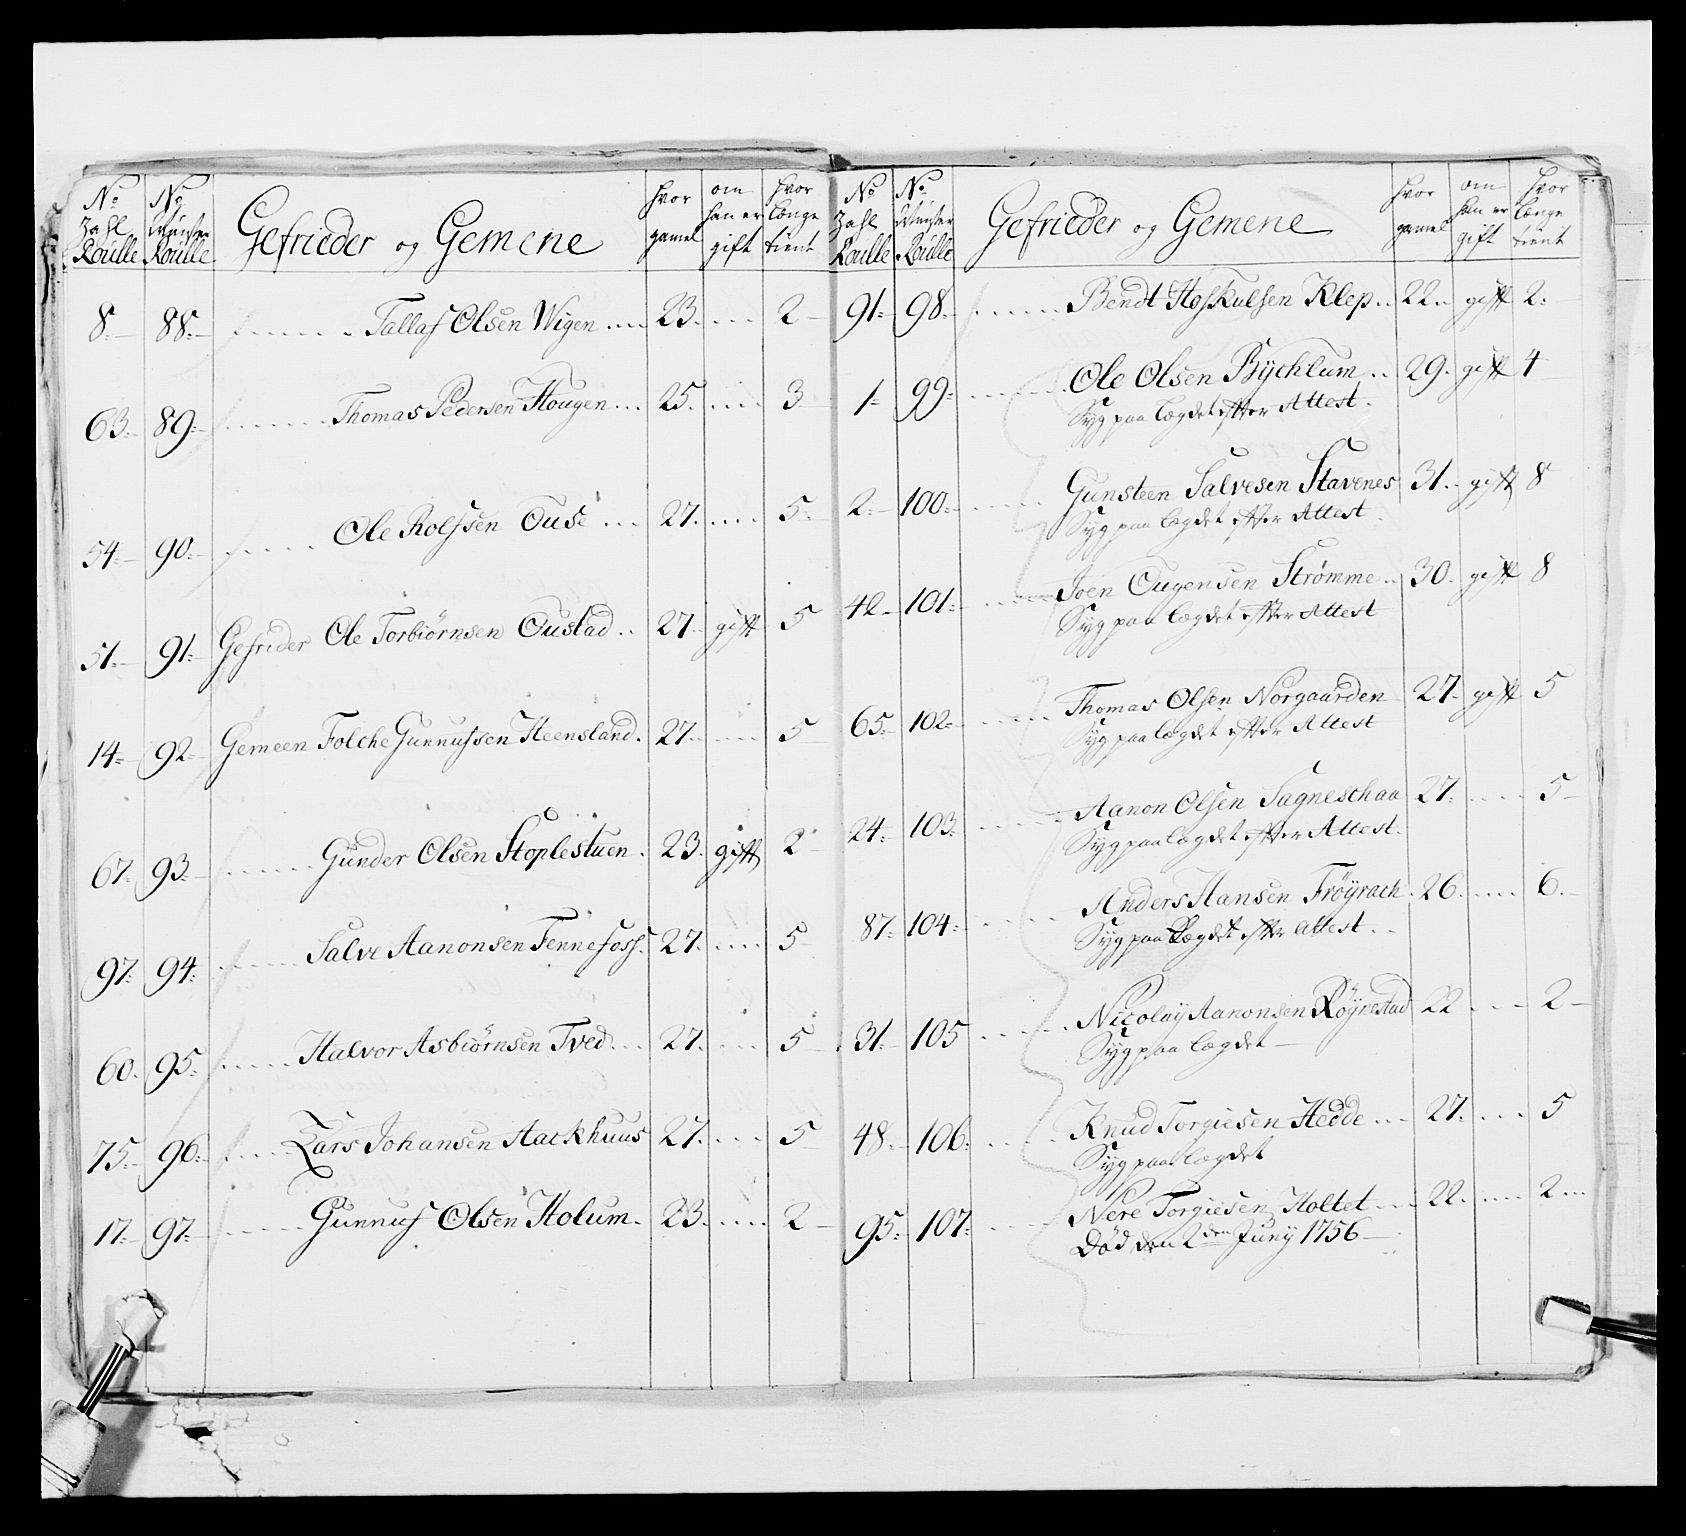 No Zahl Roulle No Munster Roulle Gefrieder og Gemene hvor gamel om han er gift hvor længe tient
8 88 Tallaf Olsen Wigen 23 2
63 89 Thomas Pedersen Hougen 25 3
54 90 Ole Rolfsen Ouse 27 5
51 91 Gefrider Ole Torbiørnsen Oustad 27 gift 5
14 92 Gemeen Folche Gunnufsen Heensland 27 5
67 93 Gunder Olsen Stoplestuen 23 gift 2
97 94 Salve Aanonsen Fennefoss 27 5
60 95 Halvor Asbiørnsen Tved 27 5
75 96 Lars Johansen Aackhuus 27 5
17 97 Gunnuf Olsen Holum 23 2
No Zahl Roulle No Munster Roulle Gefrieder og Gemene hvor gamel om han er gift hvor længe tient
91 98 Bendt Hoskulsen Klep 22 gift 2
1 99 Ole Olsen Bychlum 29 gift 4
Syg paa lægdet efter Attest
2 100 Gunsteen Salvesen Stavenes 31 gift 8
Syg paa lægdet efter Attest
42 101 Joen Ougensen Strømme 30 gift 8
Syg paa lægdet efter Attest
65 102 Thomas Olsen Norgaarden 27 gift 5
Syg paa lægdet efter Attest
24 103 Aanon Olsen Sagneschaa 27 5
Syg paa lægdet efter Attest
87 104 Anders Hansen Frøyrach 26 6
Syg paa lægdet efter attest
31 105 Nicolay Aanonsen Røynstad 22 2
Syg paa lægdet
48 106 Knud Torgiesen Hedde 27 5
Syg paa lægdet
95 107 Nere Torgiesen Holtet 22 2
Død den 2den Juny 1756